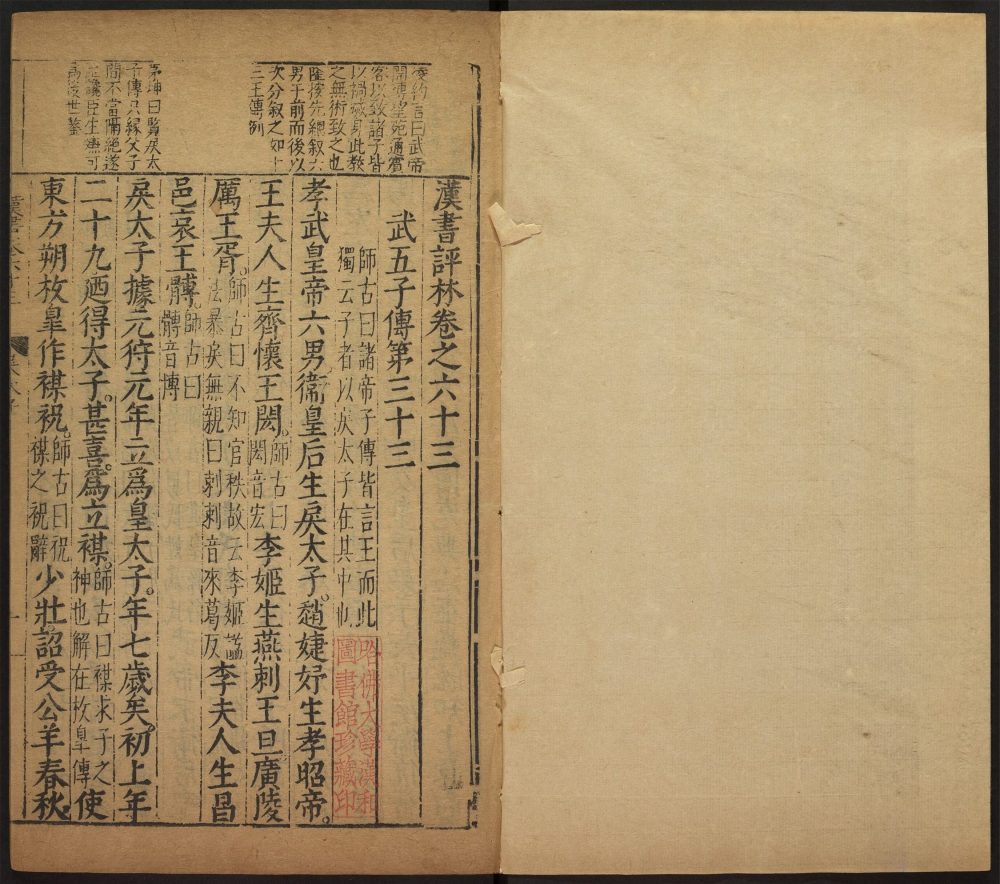 漢書評林卷之六十三
武五子傳第三十三
師古曰諸帝子傳皆言王而此
獨云子者以戾太子在其中也
哈佛大學漢和
圖書館珍藏印
孝武皇帝六男衞皇后生戾太子趙婕妤生孝昭帝
王夫人生齊懷王閎師古曰閎音宏李姬生燕剌王旦廣陵
厲王胥師古曰不知官秩故云李姬謚
法暴戾無親曰剌剌音來葛反李夫人生昌
邑哀王髆師古曰髆音博
戾太子據元狩元年立爲皇太子年七歲矣初上年
二十九廼得太子甚喜爲立禖師古曰禖求子之神也解在枚皐傳使
東方朔枚皐作禖祝師古曰祝禖之祝辭少壯詔受公羊春秋
凌約言曰武帝
開博望苑通賓
客以致諸子皆
以禍敗身此教
之無術致之也
隆按先總叙六
男于前而後以
次分叙之如
三王傳例
茅坤曰覽戾太
子傳只緣父子
間不當隔絕遂
至讒臣生
爲後世鑒